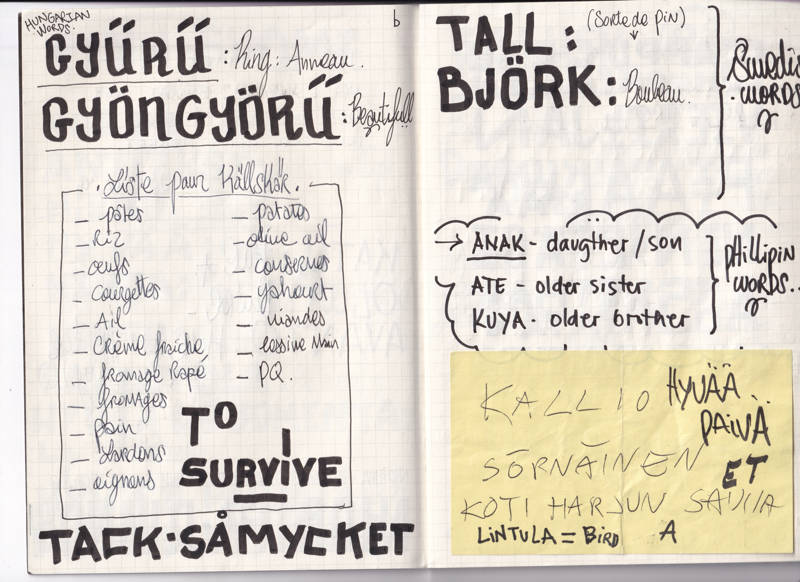 HUNGARIAN
WORDS.
GYŰRŰ : Ring: Anneau.
GYÖNGYÖRŰ : Beautifull
Liste pour Källskäk.
_ pâtes
_ Riz
_ oeufs
_ courgettes
_ Ail
_ crème fraîche
_ fromage Rapé
_ fromAges
_ pain
_ Lardons
_ oignons
_ patates
_ olive oil
_ conserves
_ yahourt
_ viandes
_ lessive Main
_ PQ.
TO
SURVIVE
TACK·SÅMYCKET
b
TALL: (Sorte de pin)
BJÖRK: Bouleau.
Swedis
WORDS
→ ANAK - daugther / son
ATE - older sister
KUYA - older brother
phillipin
WORDS..
KALLIO
HYVÄÄ
PÄIVÄ
SÖRNÄINEN
ET
KOTI HARJUN SAUNA
LiNTULA = BiRD A